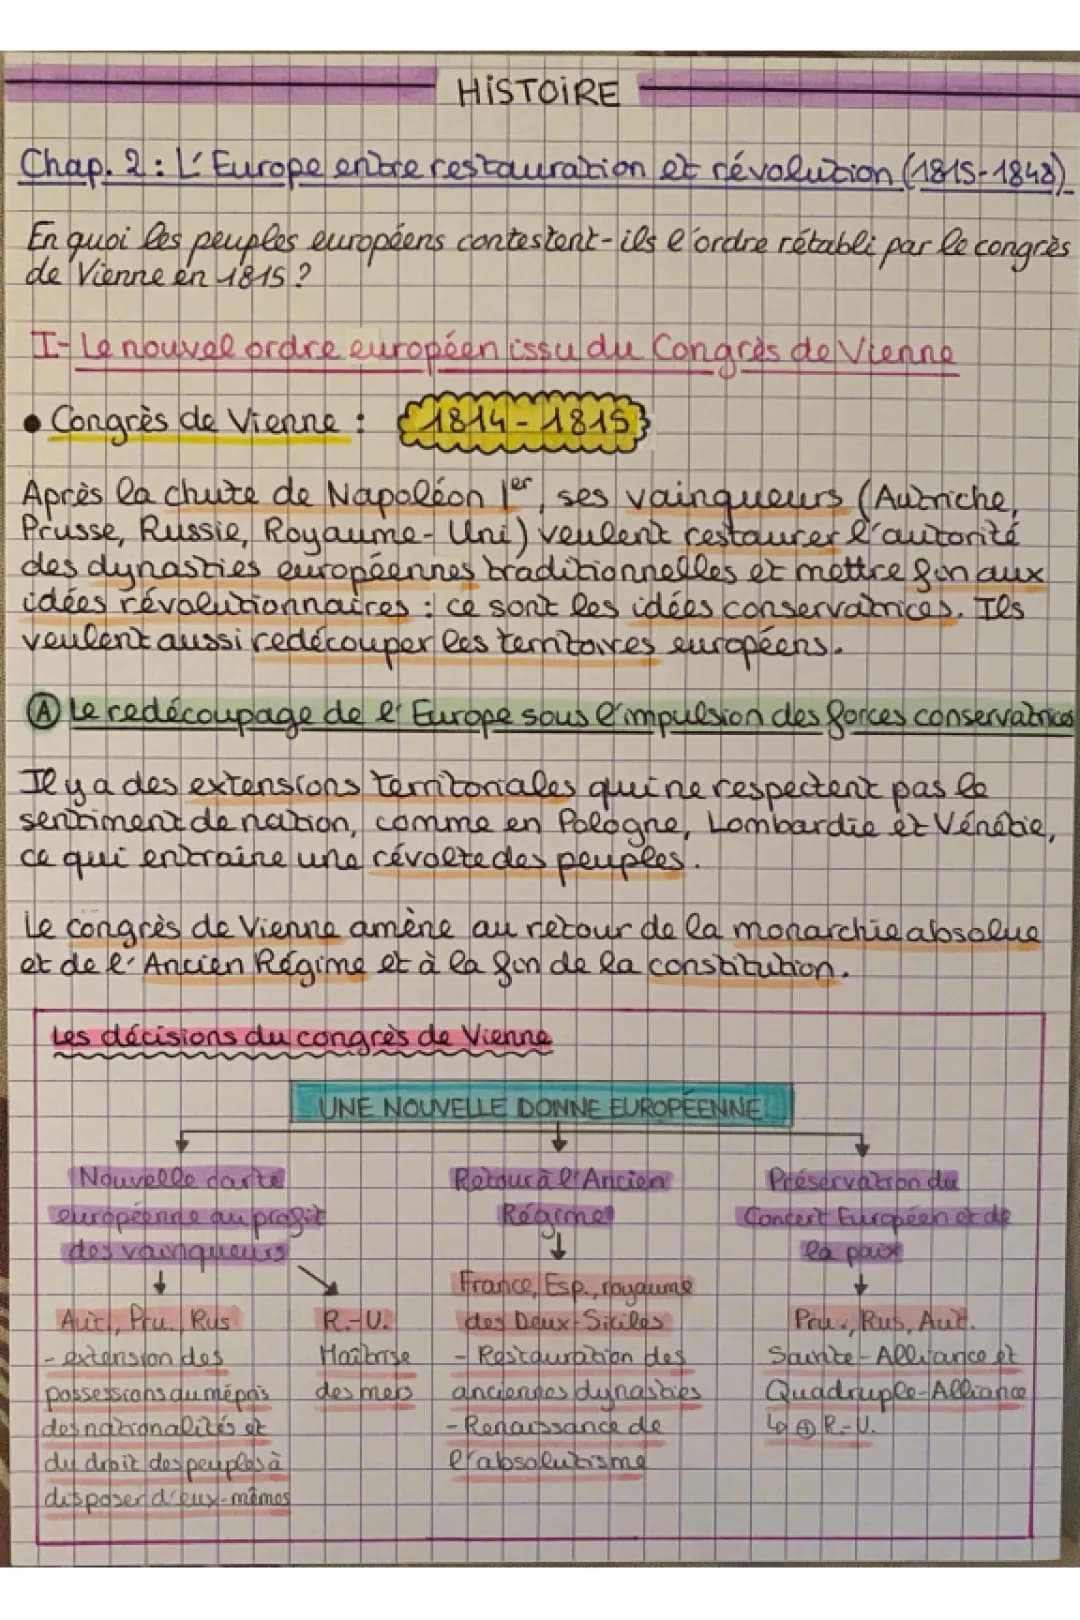 HISTOIRE
Chap. 2 : L'Europe entre restauration et révolution (1815-1848)
En quoi les peuples européens contestent-ils l'ordre rétabli par le congrès
de Vienne en 1815 ?
I- Le nouvel ordre européen issu du Congrès de Vienne
• Congrès de Vienne : 1814 - 1815
Après la chute de Napoléon 1er, ses vainqueurs (Autriche,
Prusse, Russie, Royaume-Uni) veulent restaurer l'autorité
des dynasties européennes traditionnelles et mettre fin aux
idées révolutionnaires : ce sont les idées conservatrices. Ils
veulent aussi redécouper les territoires européens.
Ⓐ Le redécoupage de l'Europe sous l'impulsion des forces conservatrices
Il y a des extensions territoriales qui ne respectent pas le
sentiment de nation, comme en Pologne, Lombardie et Vénétie,
ce qui entraine une révolte des peuples.
Le congrès de Vienne amène au retour de la monarchie absolue
et de l'Ancien Régime et à la fin de la constitution.
Les décisions du congrès de Vienne
UNE NOUVELLE DONNE EUROPÉENNE
Nouvelle carte
européenne au profit
des vainqueurs
Aut., Pru., Rus
- extension des
possessions au mépris
des nationalités et
du droit des peuples à
disposer d'eux-mêmes
R.-U.
Maîtrise
des mers
Retour à l'Ancien
Régime
France, Esp., royaume
des Deux-Siciles
- Restauration des
anciennes dynasties
- Renaissance de
l'absolutisme
Préservation du
Concert Européen et de
la paix
Pru., Rus, Aut.
Sainte-Alliance et
Quadruple-Alliance
↳ ⊕ R.-U.